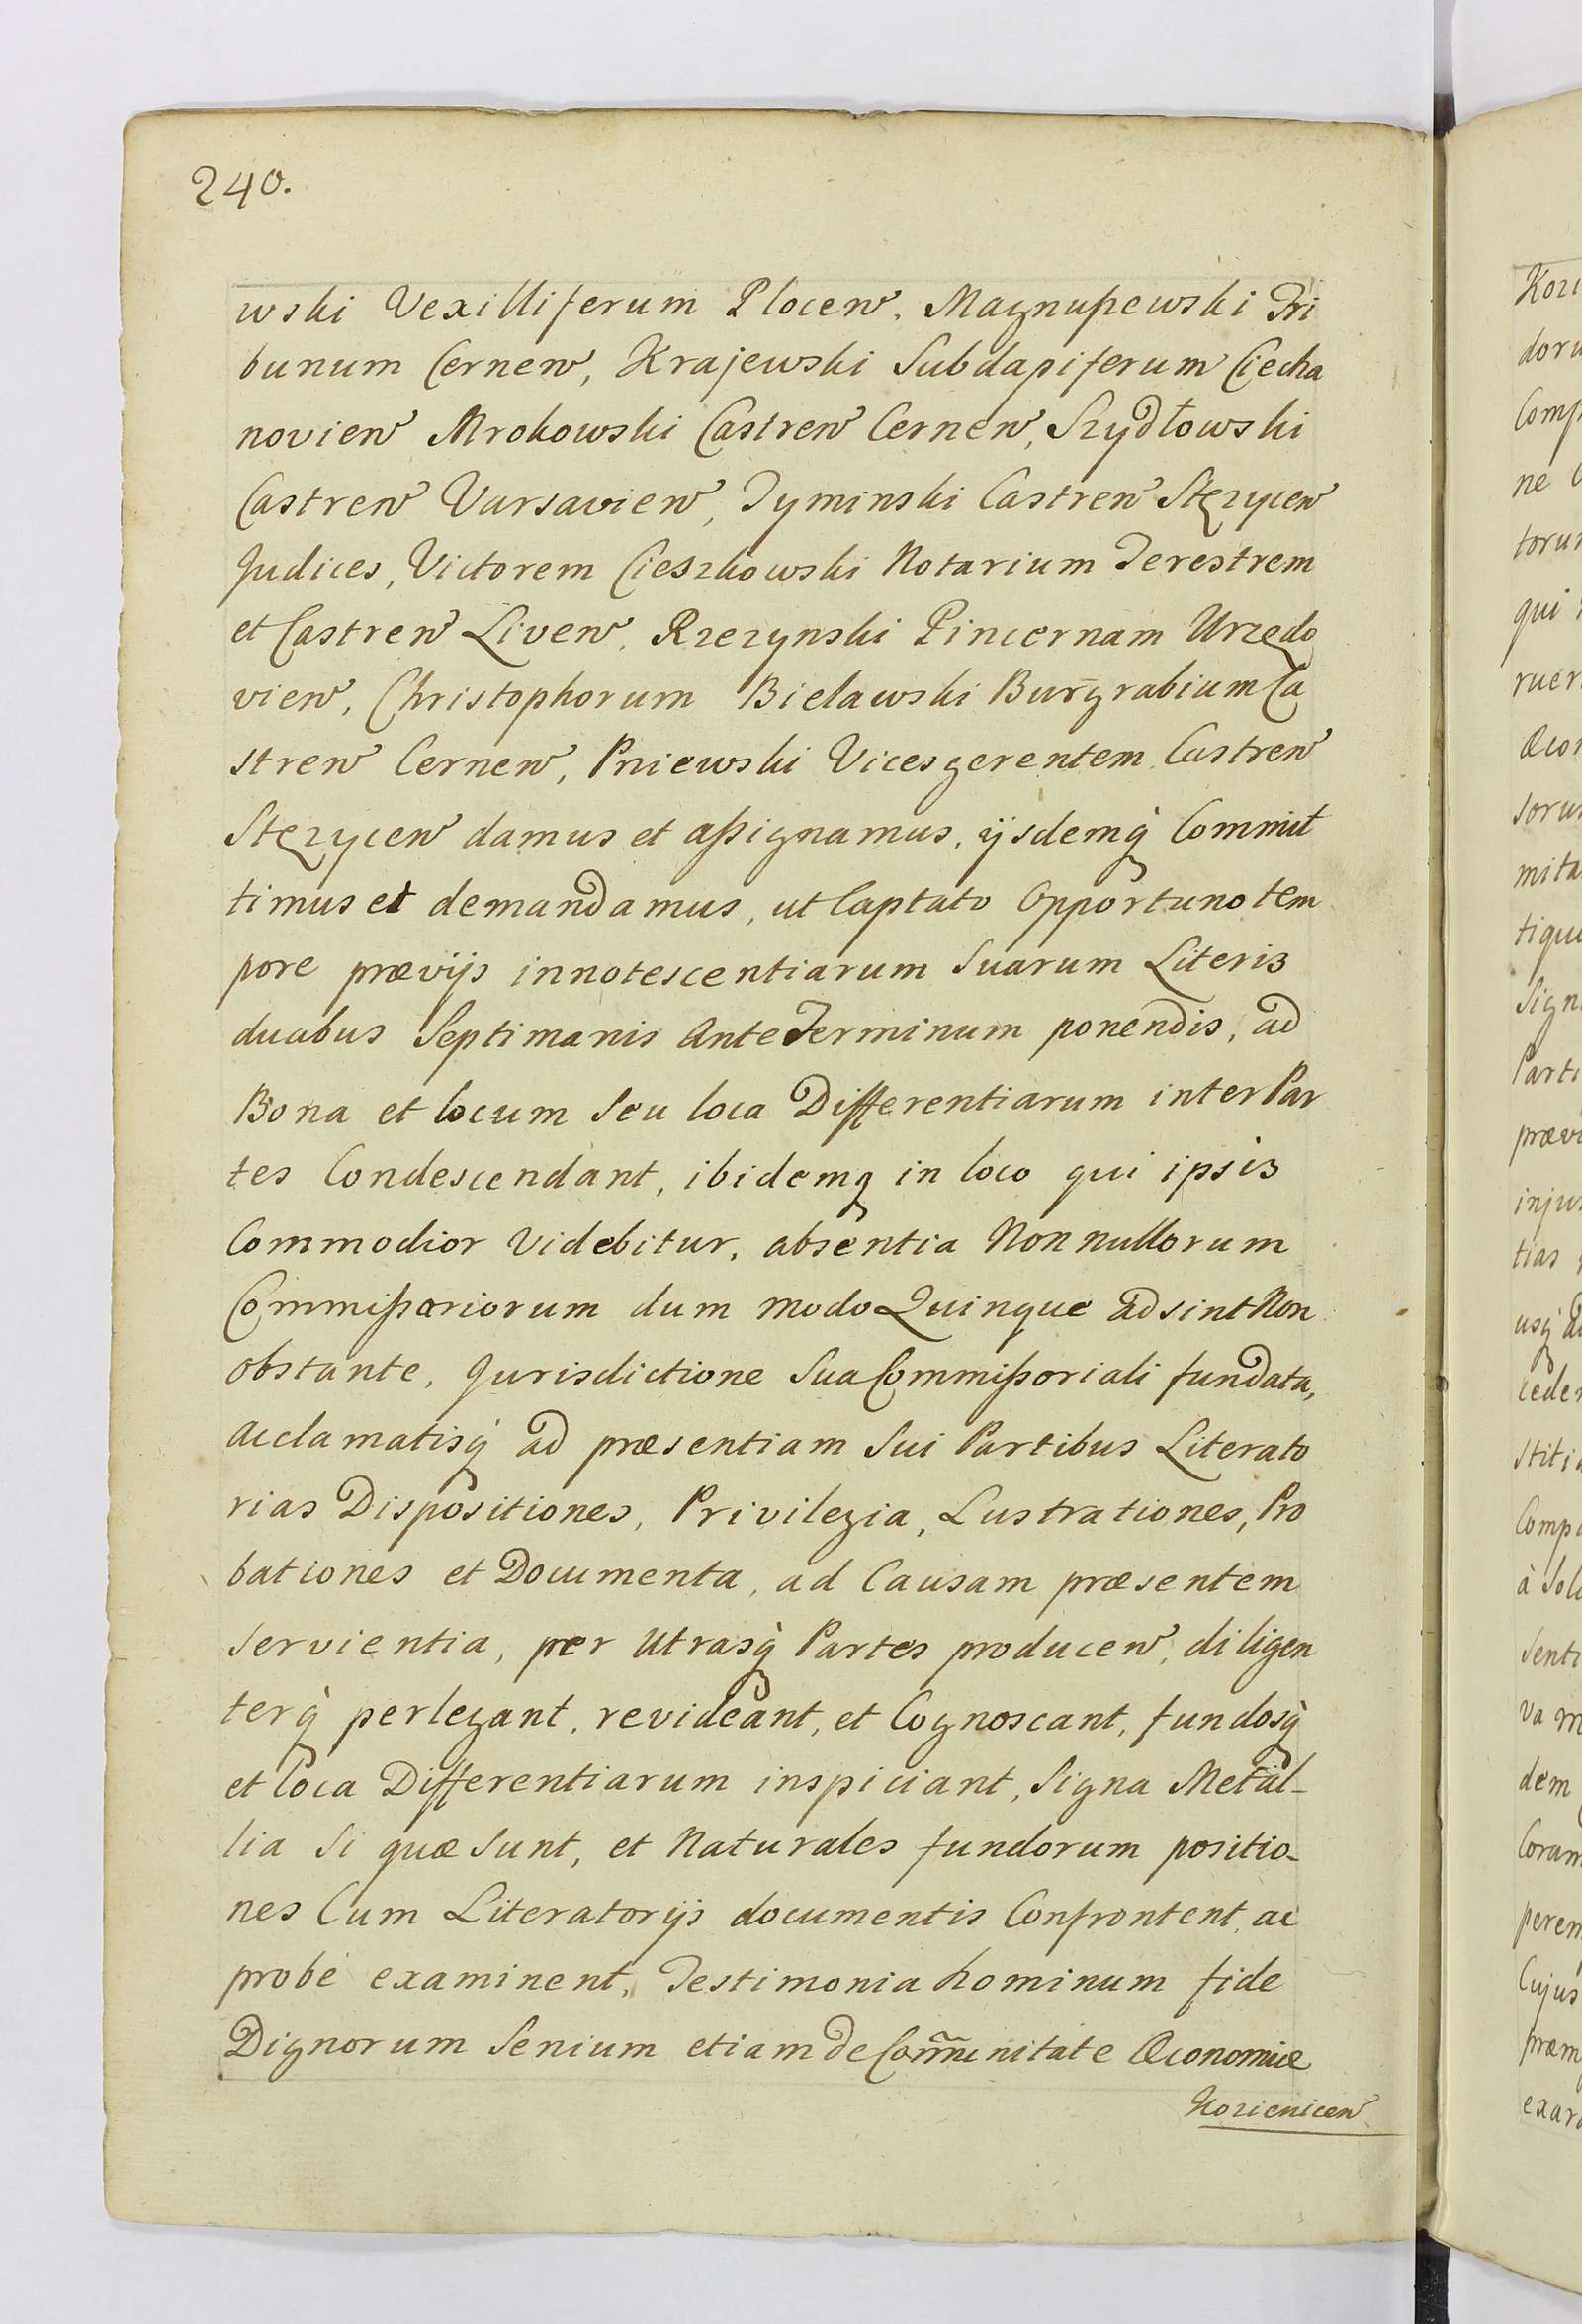 240.
wski Vexilliferum Plocen, Magnuszewski Tri
bunum Cernen, Krajewski Subdapiferum Ciecha
novien Mrokowski Castren Cernen, Szydłowski
Castren Varsavien, Tyminski Castren Stęzycen
Judices, Victorem Cieszkowski Notarium Terestrem
et Castren Liven, Rzezynski Pincernam Urzędo
vien, Christophorum Bielawski Burgrabium Ca
stren Cernen, Pniewski Vicesgerentem Castren
Stęzycen damus et assignamus, ijsdemq̀ Commit
timus et demandamus, ut Captato Opportuno tem
pore prævijs innotescentiarum Suarum Literis
duabus Septimanis Ante Terminum ponendis, ad
Bona et locum Seu loca Differentiarum inter Par
tes Condescendant, ibidemq in loco qui ipsis
Commodior Videbitur, absentia Non nullorum
Commissoriorum dum modo Quinque adsint Non
obstante, Jurisdictione Sua Commissoriali fundata,
acclamatisq̀ ad præsentiam Sui Partibus Literato
rias Dispositiones, Privilegia, Lustrationes, Pro
bationes et Documenta, ad Causam præsentem
Servientia, per Utrasq̀ Partes producen, diligen
terq̀ perlegant, revideant, et Cognoscant, fundosq̀
et Loca Differentiarum inspiciant, Signa Metal-
lia Si quæ Sunt, et Naturales fundorum positio-
nes Cum Literatorijs documentis Confrontent, ac
probè examinent, Testimonia hominum fide
Dignorum Senium etiam de Com̃unitate Œconomiæ
Kozienicen